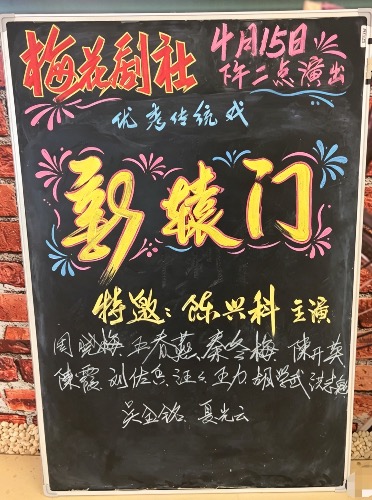 梅花剧社
4月15日
下午二点演出
优秀传统戏
新辕门
特邀：陈兴科 主演
周晓梅 王春燕 秦冬梅 陈开英
陈霞 刘佐兵 汪 王力 胡兴武
吴玉铭 夏光云